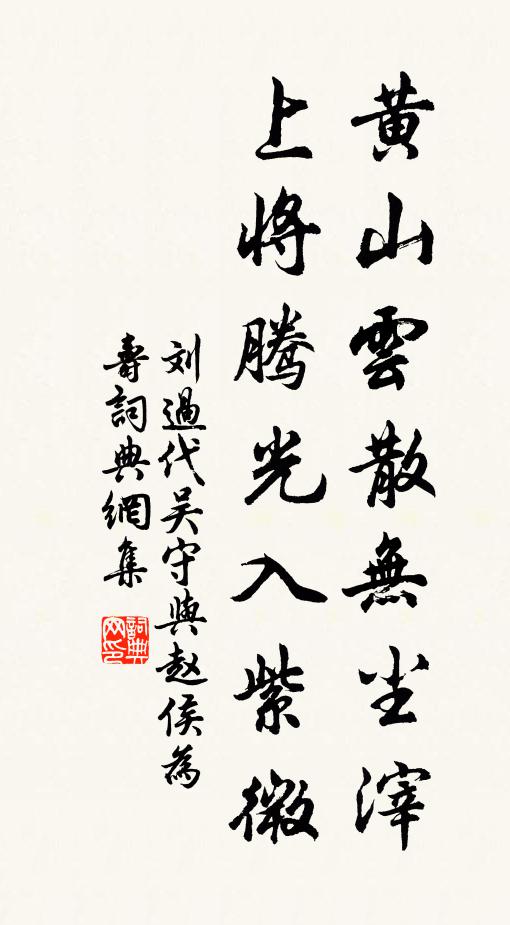 黃山雲散無尘滓
上將騰光入紫微
刘過代吴守與赵侯為
壽詞典網集
詞典网印